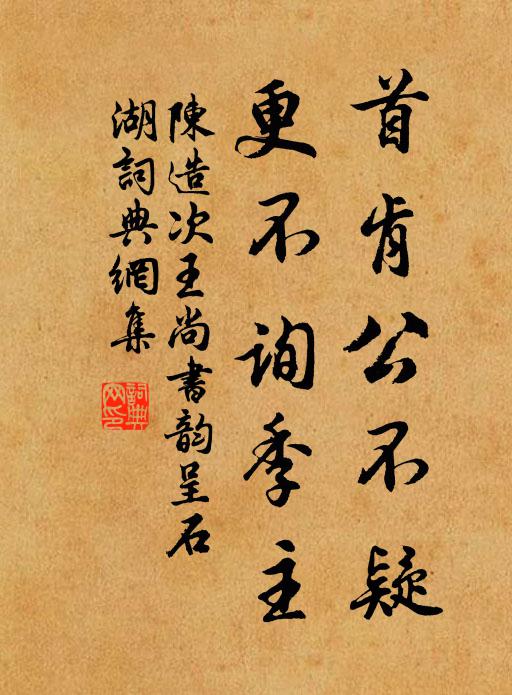 首肯公不疑
更不询季主
陳造次王尚書韵呈石
湖詞典網集
詞典
网印